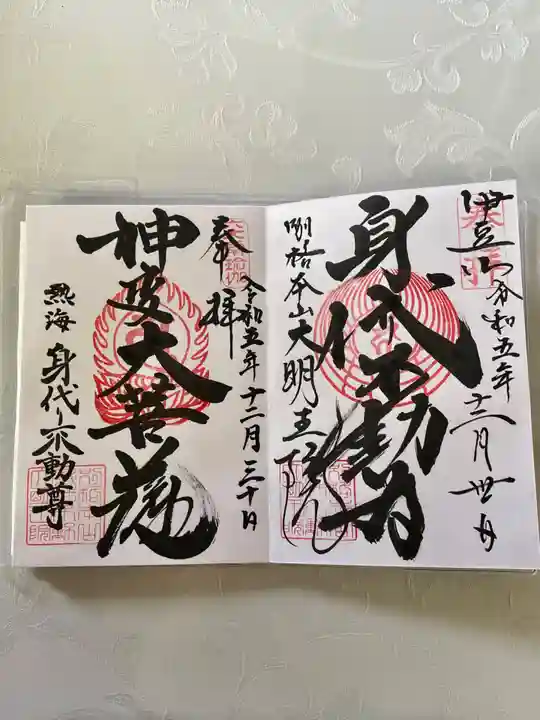 伊豆山
令和五年十二月卅日
身代不動尊
別格本山大明王院
奉拝
令和五年十二月三十日
神変大菩薩
熱海 身代り不動尊